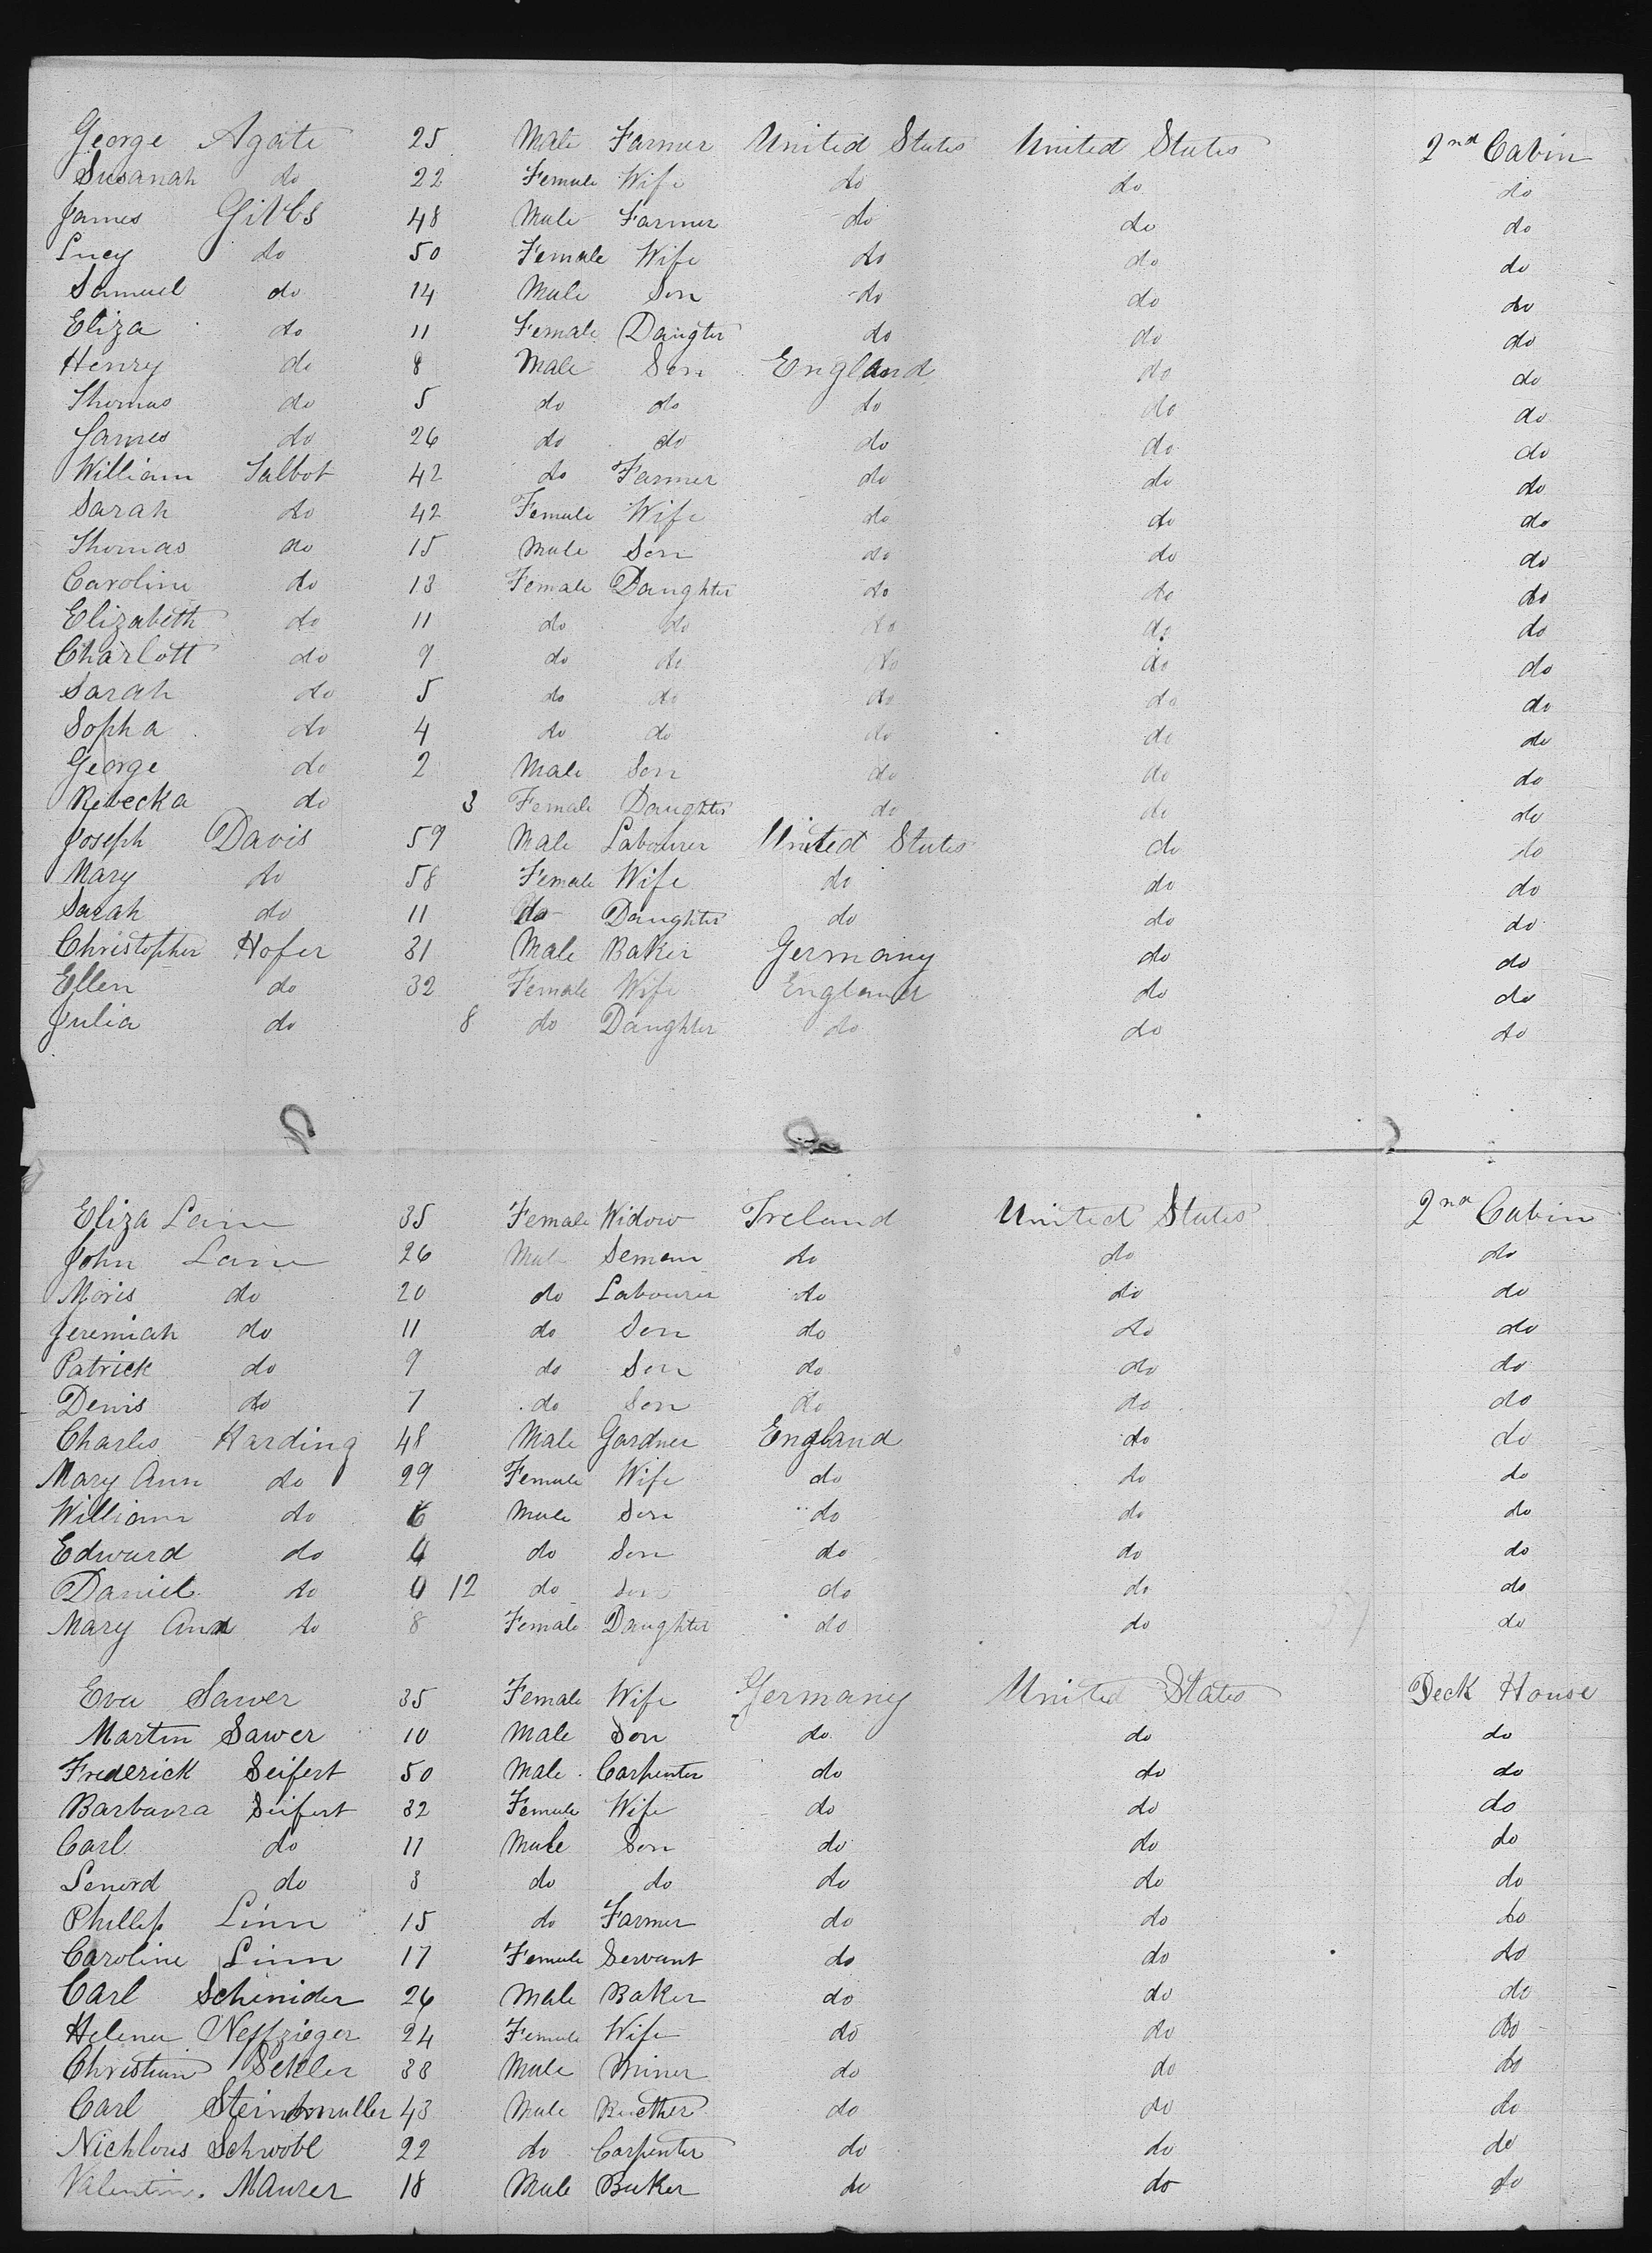 George Agate 25 Male Farmer United States United States 2nd Cabin
Susanah do 22 Female Wife do do do
James Gibbs 48 Male Farmer do do do
Lucy do 50 Female Wife do do do
Samuel do 14 Male Son do do do
Eliza do 11 Female Daugter do do do
Henry do 8 Male Son England do do
Thomas do 5 do do do do do
James do 26 do do do do do
William Talbot 42 do Farmer do do do
Sarah do 42 Female Wife do do do
Thomas do 15 Male Son do do do
Caroline do 13 Female Daughter do do do
Elizabeth do 11 do do do do do
Charlott do 9 do do do do do
Sarah do 5 do do do do do
Sopha do 4 do do do do do
George do 2 Male Son do do do
Rebecka do 3 Female Daughter do do do
Joseph Davis 59 Male Labourer United States do do
Mary do 58 Female Wife do do do
Sarah do 11 do Daughter do do do
Christopher Hofer 31 Male Baker Germany do do
Ellen do 32 Female Wife England do do
Julia do 8 do Daughter do do do
Eliza Lain 35 Female Widow Ireland United States 2nd Cabin
John Lain 26 Male Seman do do do
Moris do 20 do Labourer do do do
Jeremiah do 11 do Son do do do
Patrick do 9 do Son do do do
Denis do 7 do Son do do do
Charles Harding 48 Male Gardner England do do
Mary Ann do 29 Female Wife do do do
William do 6 Male Son do do do
Edward do 4 do Son do do do
Daniel do 0 12 do Son do do do
Mary Ann do 8 Female Daughter do do do
Eva Sawer 35 Female Wife Germany United States Deck House
Martin Sawer 10 Male Son do do do
Frederick Seifert 50 Male Carpenter do do do
Barbarra Seifert 32 Female Wife do do do
Carl do 11 Male Son do do do
Lenord do 3 do do do do do
Phillip Linn 15 do Farmer do do do
Caroline Linn 17 Female Servant do do do
Carl Schinider 26 Male Baker do do do
Helena Neffzieger 24 Female Wife do do do
Christian Sekler 38 Male Miner do do do
Carl 43 Male do do do
Nichlous Schwobl 22 do Carpenter do do do
Valentin Maurer 18 Male Baker do do do